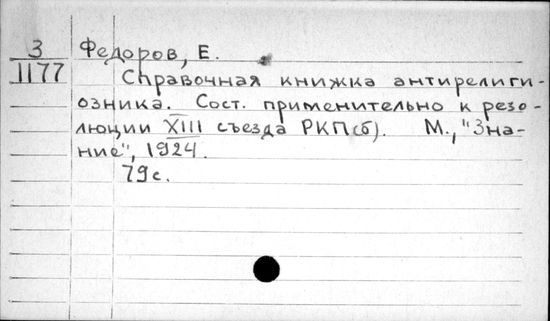 3
1177
Федоров, Е.
Справочная книжка антирелиги-
озника. Сост. применительно к резо-
люции XIII съезда РКП(б). М., "Зна-
ние", 1924.
79с.